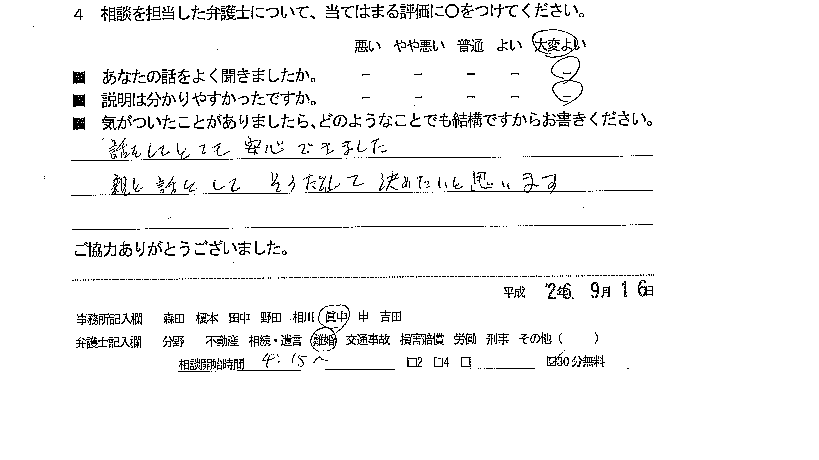 4 相談を担当した弁護士について、当てはまる評価に○をつけてください。
悪い やや悪い 普通 よい 大変よい
■ あなたの話をよく聞きましたか。 － － － － －
■ 説明は分かりやすかったですか。 － － － － －
■ 気がついたことがありましたら、どのようなことでも結構ですからお書きください。
話をしてとても安心できました
親と話をして そうだんして 決めたいと思います
ご協力ありがとうございました。
平成 26年 9月 16日
事務所記入欄 森田 榎本 田中 野田 相川 眞中 申 吉田
弁護士記入欄 分野 不動産 相続・遺言 離婚 交通事故 損害賠償 労働 刑事 その他（ ）
相談開始時間 4:15～ □2 □4 □ ☑30分無料